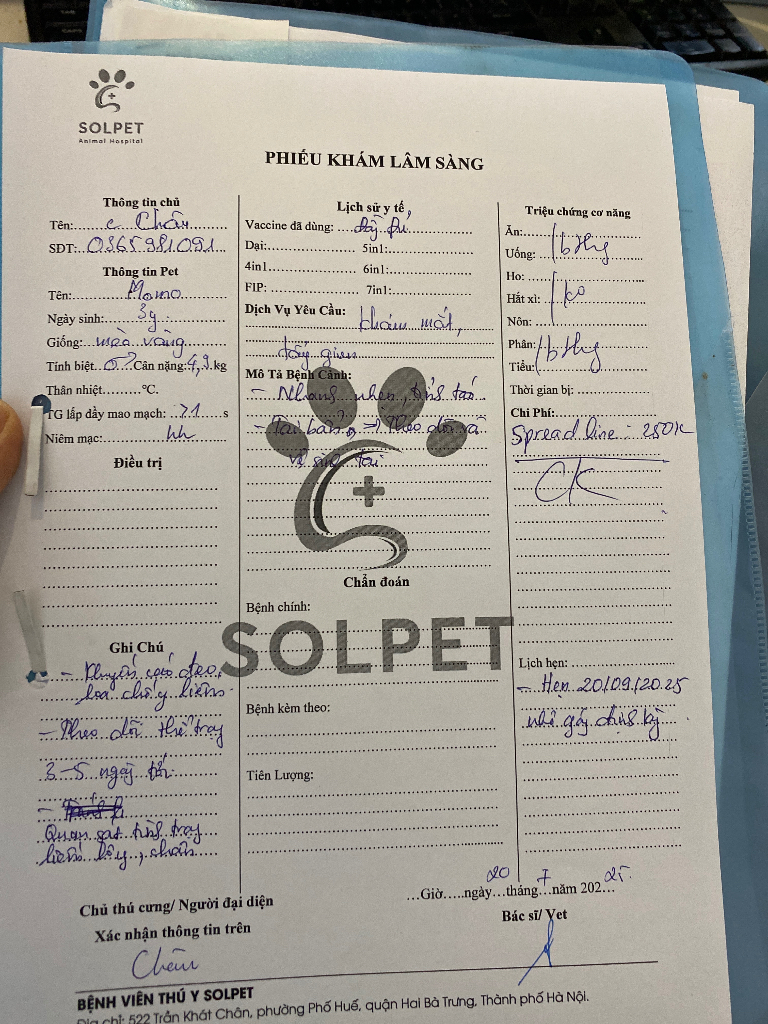 SOLPET
Animal Hospital
PHIẾU KHÁM LÂM SÀNG
Thông tin chủ
Tên: c Châu
SĐT: 0365981091
Thông tin Pet
Tên: Momo
Ngày sinh: 3y
Giống: mèo vàng
Tính biệt. ♂? Cân nặng: 4,9 kg
Thân nhiệt...........°C.
TG lấp đầy mao mạch: >1 s
Niêm mạc: hh
Điều trị
Ghi Chú
- Khuyến cáo đeo
loa chống liếm
- Theo dõi thể trạng
3-5 ngày tới
Quan sát tình trạng
liếm lông, chân
Lịch sử y tế
Vaccine đã dùng: đầy đủ
Dại: 5in1:
4in1 6in1:
FIP: 7in1:
Dịch Vụ Yêu Cầu: khám mắt,
tẩy giun
Mô Tả Bệnh Cảnh:
- Nhanh nhẹn, tỉnh táo
- => Theo dõi và
vệ sinh tai
Chẩn đoán
Bệnh chính:
SOLPET
Bệnh kèm theo:
Tiên Lượng:
Triệu chứng cơ năng
Ăn:
Uống: bthg
Ho:
Hắt xì: ko
Nôn:
Phân: bthg
Tiểu:
Thời gian bị:
Chi Phí:
Spread line: 250k
CK
Lịch hẹn:
- Hẹn 20/09/2025
nhỏ gáy định kỳ
...Giờ.....ngày 20 tháng 7 năm 2025
Chủ thú cưng/ Người đại diện
Xác nhận thông tin trên
Châu
Bác sĩ/ Vet
BỆNH VIỆN THÚ Y SOLPET
Địa chỉ: 522 Trần Khát Chân, phường Phố Huế, quận Hai Bà Trưng, Thành phố Hà Nội.